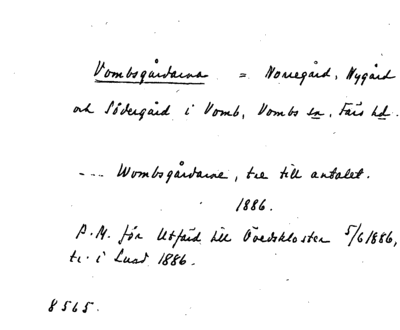 Vombsgårdarna = Norregård, Nygård
och Södergård i Vomb, Vombs sn, Färs hd.
--- Wombsgårdarne, tre till antalet.
1886.
P.M. för Utfärd till Övedskloster 5/6 1886,
tr. i Lund 1886.
8565.